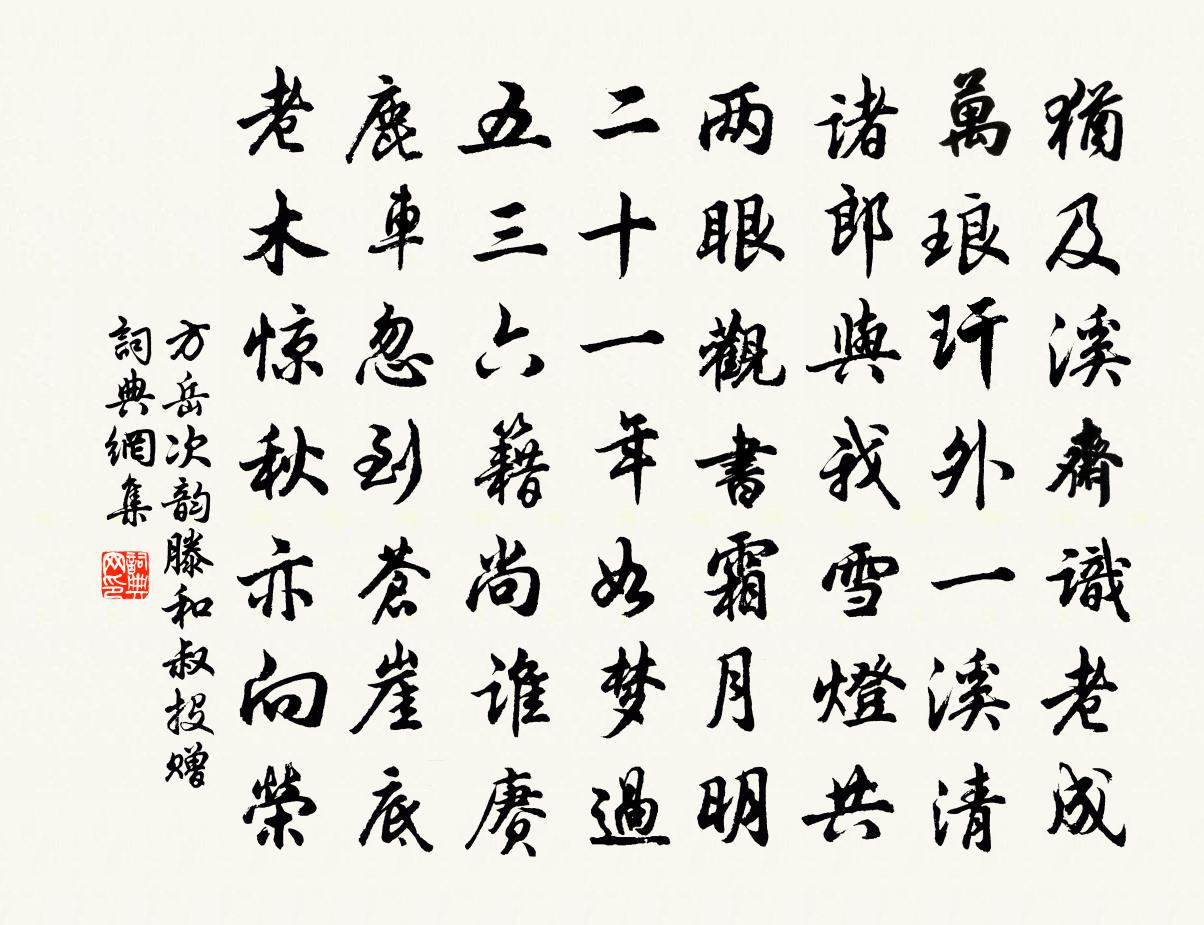 猶及溪齋識老成
萬琅玕外一溪清
诸郎與我雪燈共
两眼觀書霜月明
二十一年如梦過
五三六籍尚谁赓
鹿車忽到蒼崖底
老木惊秋亦向榮
方岳次韵滕和叔投赠
詞典網集
詞典
网印